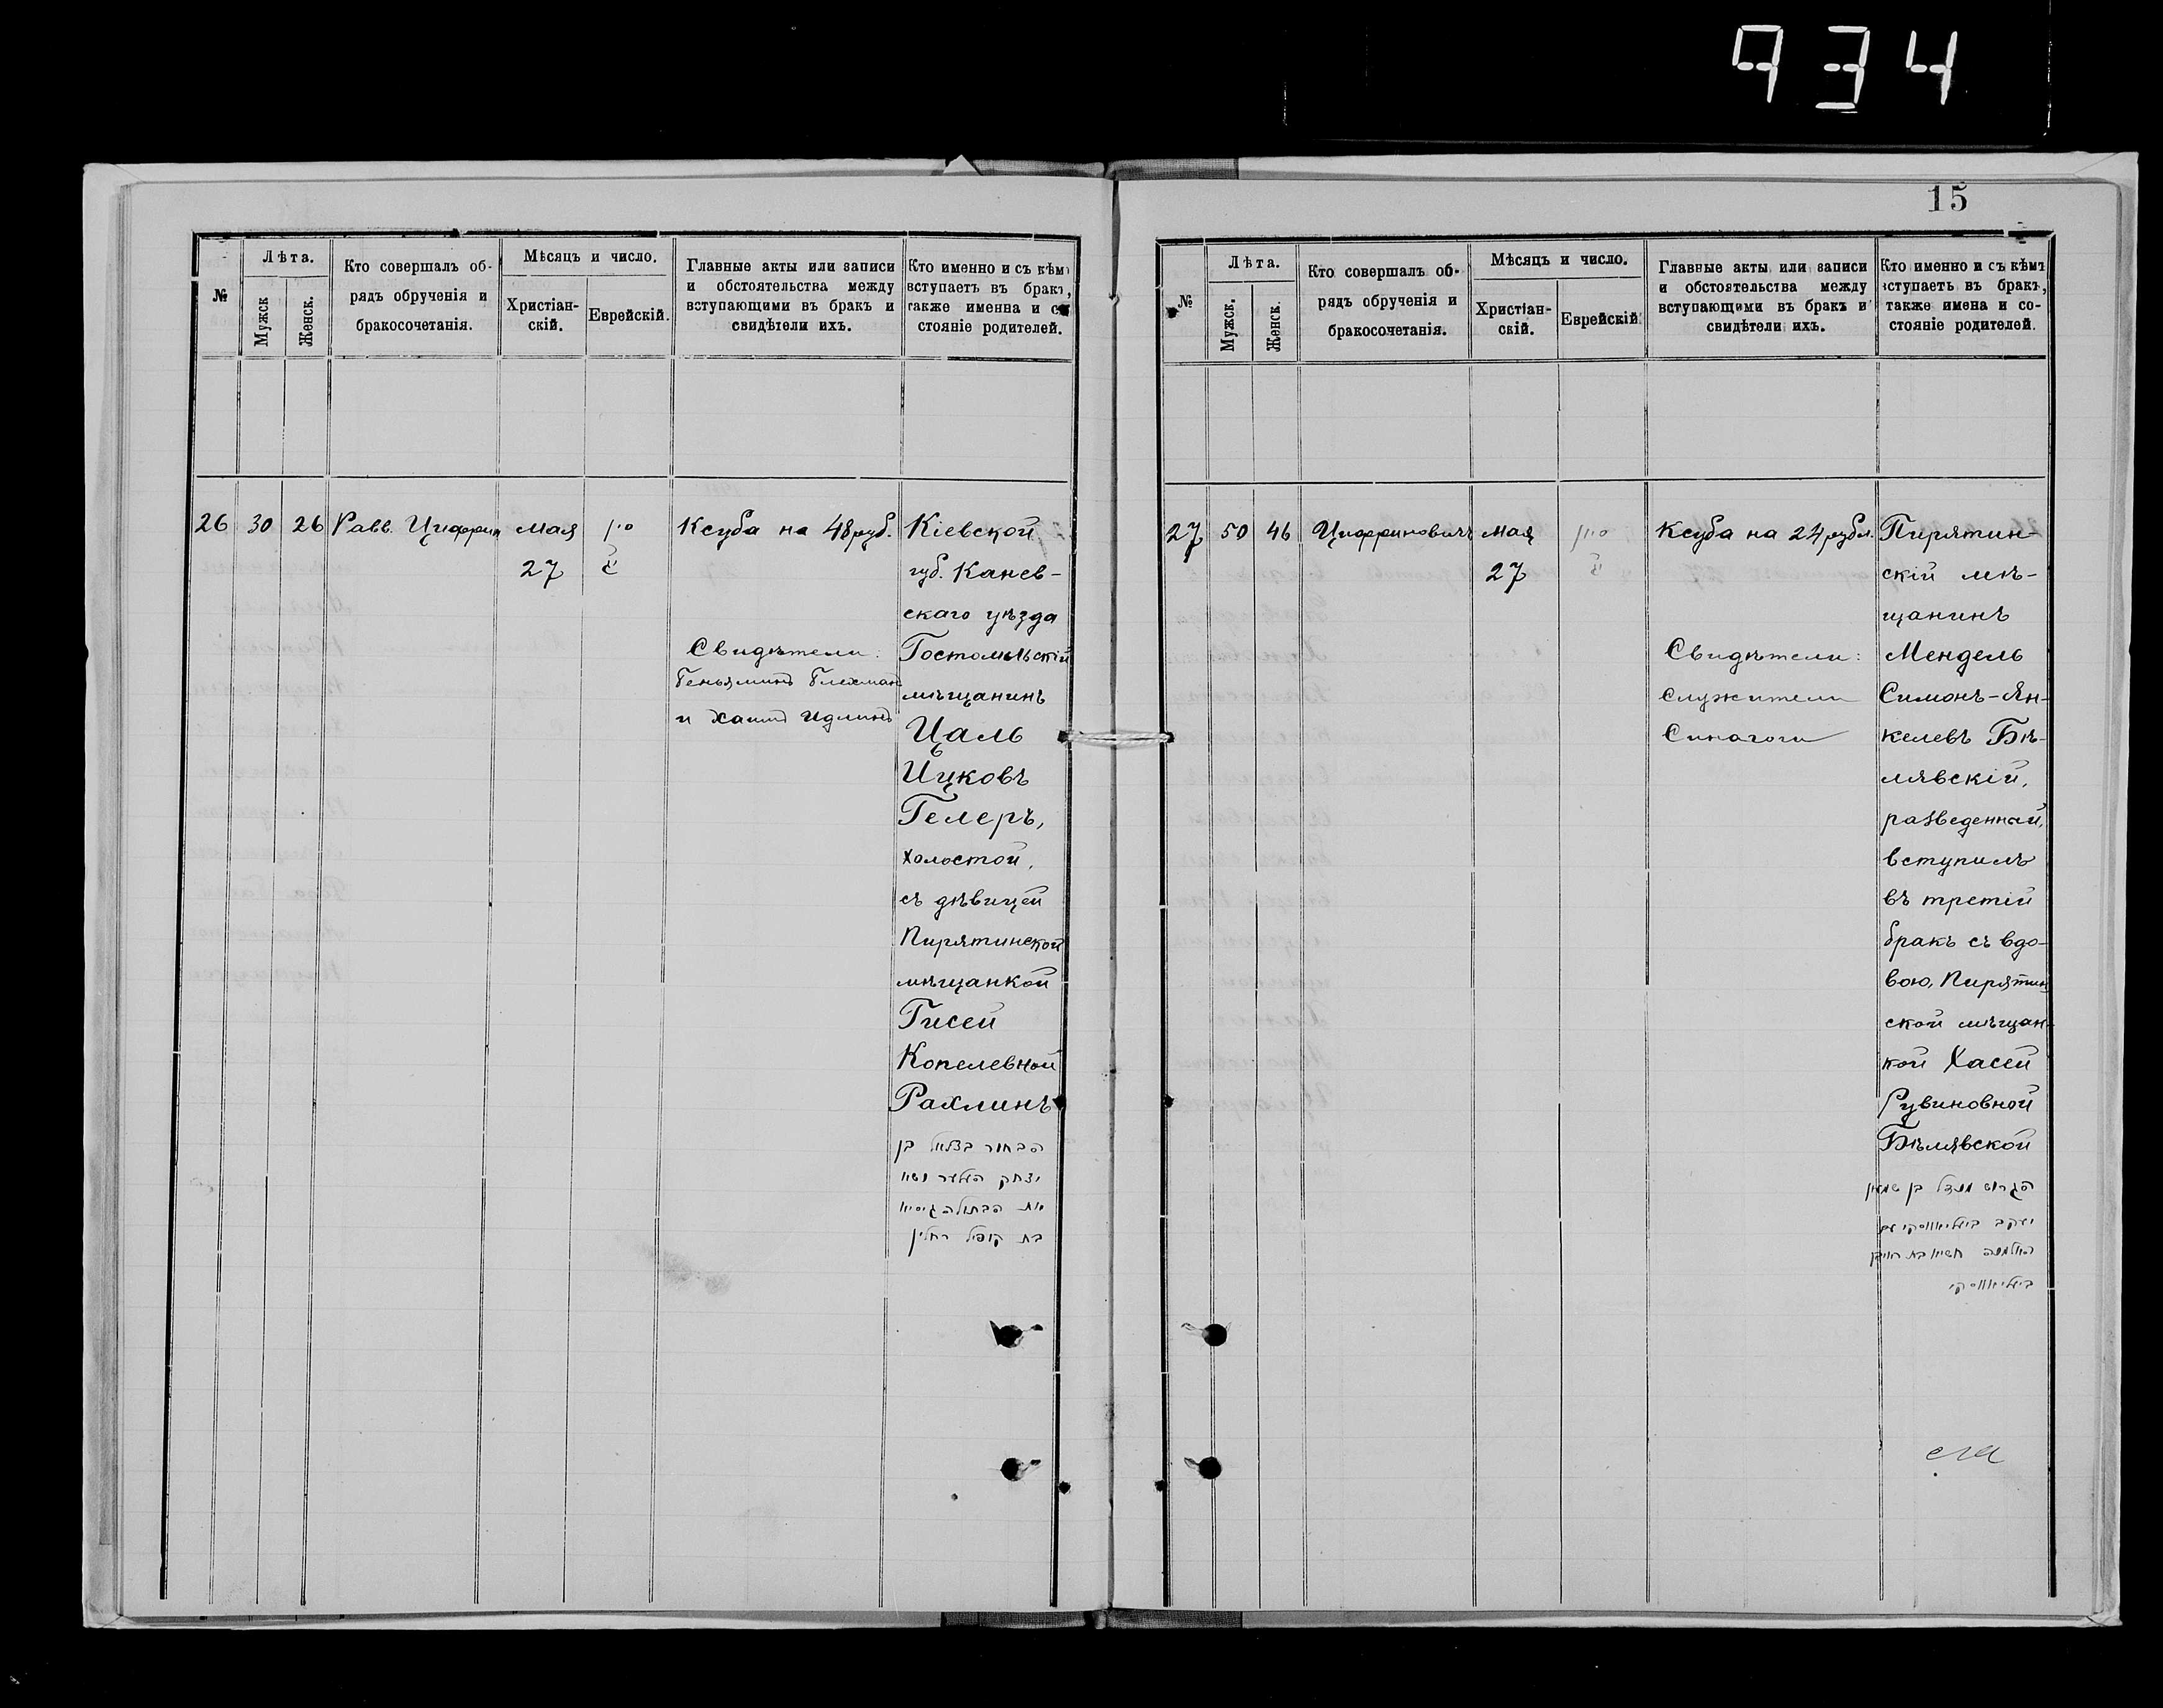 934
№
Лѣта.
Мужск
Женск.
Кто совершалъ об-
рядъ обрученія и
бракосочетанія.
Мѣсяцъ и число.
Христіан-
скій.
Еврейскій.
Главные акты или записи
и обстоятельства между
вступающими въ бракъ и
свидѣтели ихъ.
Кто именно и съ кѣмъ
вступаетъ въ бракъ,
также имена и со-
стояніе родителей.
26
30
26
Равв. Цифрин
мая
27
סיון
Ксуба на 48 руб.
Свидѣтели:
и Хаимъ Идлинъ
Кіевской
губ. Канев-
скаго уѣзда
Гостомльскій
мѣщанинъ
Цаль
Ицковъ
Гелеръ,
холостой,
съ дѣвицей
Пирятинской
мѣщанкой
Гисей
Копелевной
Рахлинъ
הבחור בצלאל בן
יצחק העלער נשא
את הבתולה גיסיא
בת קופיל רחלין
15
№
Лѣта.
Мужск.
Женск.
Кто совершалъ об-
рядъ обрученія и
бракосочетанія.
Мѣсяцъ и число.
Христіан-
скій.
Еврейскій
Главные акты или записи
и обстоятельства между
вступающими въ бракъ и
свидѣтели ихъ.
Кто именно и съ кѣмъ
вступаетъ въ бракъ,
также имена и со-
стояніе родителей.
27
50
46
Цифриновичъ
мая
27
סיון
Ксуба на 24 рубл.
Свидѣтели:
Служители
Синагоги
Пирятин-
скій мѣ-
щанинъ
Мендель
Симонъ-Ян-
келевъ Бѣ-
лявскій,
разведенный,
вступилъ
въ третій
бракъ съ вдо-
вою, Пирятин
ской мѣщан-
кой Хасей
Рувиновной
Бѣлявской
הגרוש מענדל בן שמעון
יעקב ביעליאווסקי עם
האלמנה חשיא בת ראובן
ביעליאווסקי